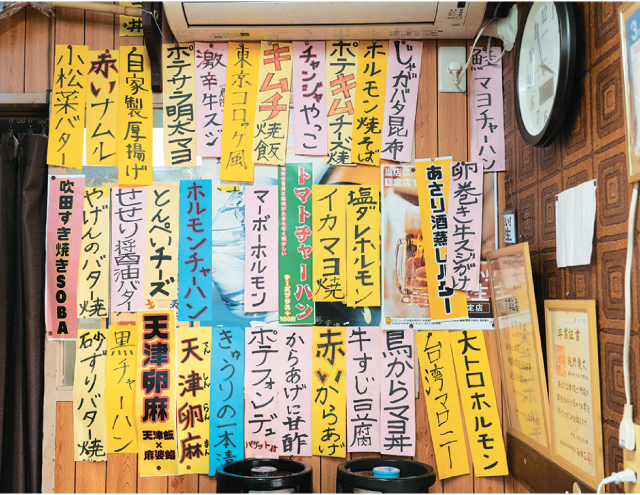 鮭マヨチャーハン
じゃがバタ昆布
ホルモン焼そば
ポテキムチーズ
チャンジャやっこ
キムチ焼飯
東京コロッケ風
激辛牛スジ
ポテナラ明太マヨ
自家製厚揚げ
赤いナムル
小松菜バター
卵巻き牛スジがけ
あさり酒蒸しバター
塩ダレホルモン
イカマヨ焼
トマトチャーハン
チーズプラス+100円
マーボーホルモン
ホルモンチャーハン
とんぺいチーズ
せせり醤油バター
やげんのバター焼
吹田すき焼きSOBA
大トロホルモン
台湾マロニー
鳥からマヨ丼
牛すじ豆腐
赤いからあげ
からあげに甘酢
ポテフォンデュ
バゲット付
きゅうりの一本漬
天津卵麻
てんしんらんまん
天津卵麻
天津飯×麻婆餡
黒チャーハン
砂ずりバター焼